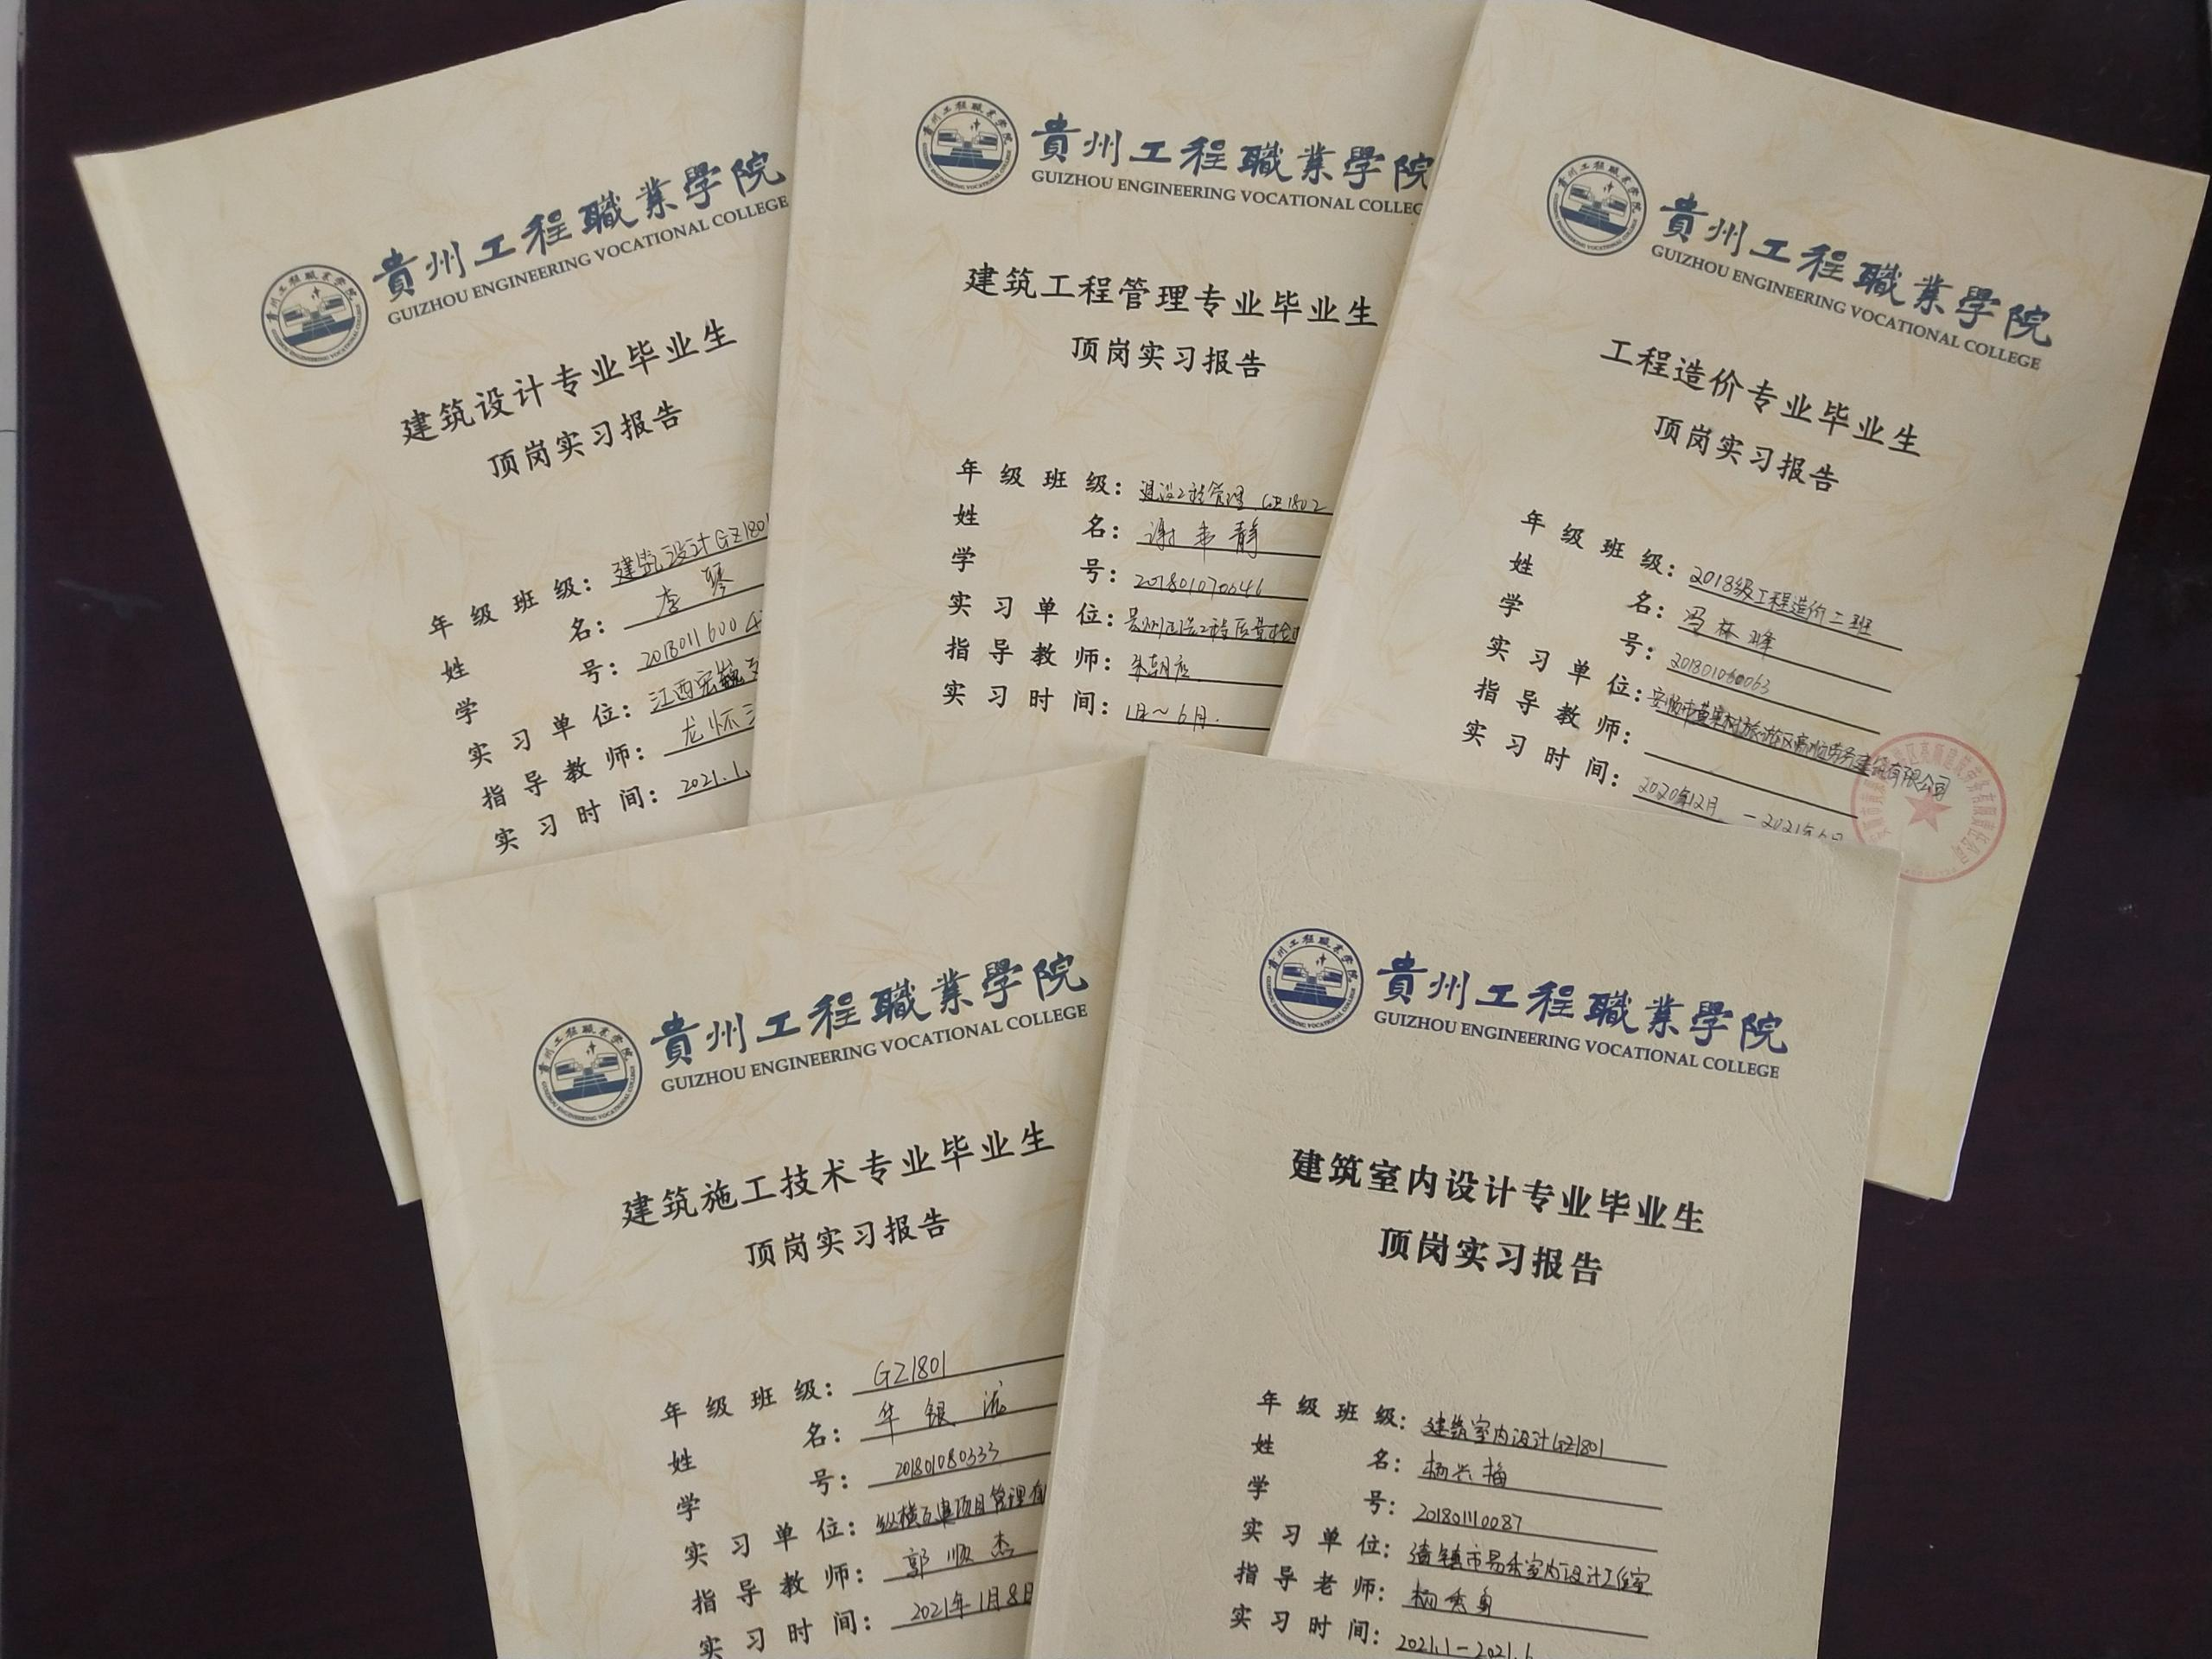 貴州工程職業學院
GUIZHOU ENGINEERING VOCATIONAL COLLEGE
建筑设计专业毕业生
顶岗实习报告
年级班级：建筑设计GZ1801
姓名：李 琴
学号：2018011600
实习单位：江西宏巍
指导教师：龙怀
实习时间：2021.1.
貴州工程職業學院
GUIZHOU ENGINEERING VOCATIONAL COLLEG
建筑工程管理专业毕业生
顶岗实习报告
年级班级：建设工程管理 GZ1802
姓名：谢 静
学号：201801070546
实习单位：贵州
指导教师：朱朝
实习时间：1月～6月.
貴州工程職業學院
GUIZHOU ENGINEERING VOCATIONAL COLLEGE
工程造价专业毕业生
顶岗实习报告
年级班级：2018级工程造价三班
姓名：冯林峰
学号：201801060063
实习单位：安顺市黄果树旅游区高顺劳务建筑有限公司
指导教师：
实习时间：2020年12月 —2021年6月
貴州工程職業學院
GUIZHOU ENGINEERING VOCATIONAL COLLEGE
建筑施工技术专业毕业生
顶岗实习报告
年级班级：GZ1801
姓名：华 银
学号：201801080333
实习单位：纵横 项目管理有
指导教师：郭 顺 杰
实习时间：2021年1月8日
貴州工程職業學院
GUIZHOU ENGINEERING VOCATIONAL COLLEGE
建筑室内设计专业毕业生
顶岗实习报告
年级班级：建筑室内设计GZ1801
姓名：杨兴梅
学号：201801110087
实习单位：清镇市易禾室内设计工作室
指导老师：杨秀
实习时间：2021.1－2021.6